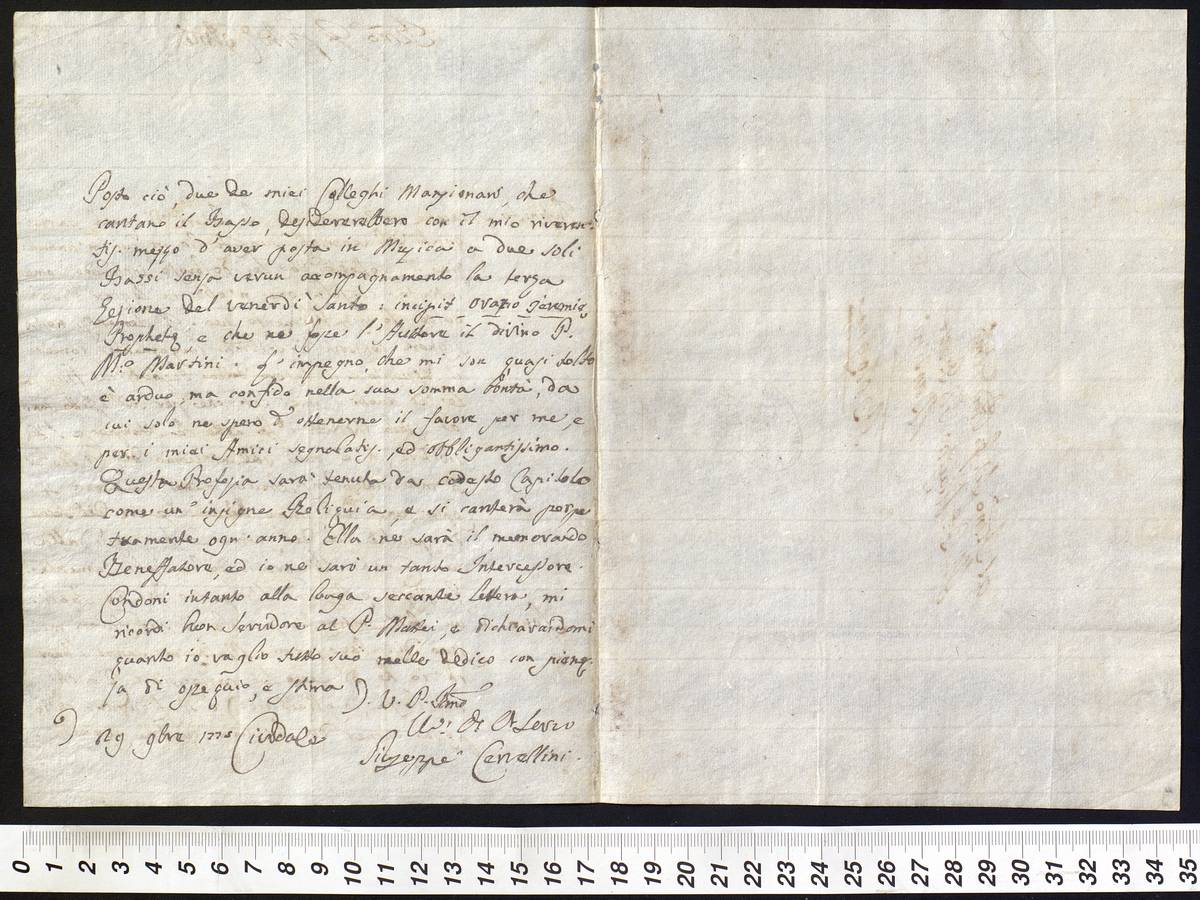 Posto ciò, due de miei Colleghi Mansionarj, che
cantano il Basso, desidererebbero con il mio riveren-
tis. mezzo d'aver posta in Musica a due soli
Bassi senza verun accompagnamento la terza
Lezione del Venerdì Santo: incipit Orazio Jeremię
Prophetę, e che ne fosse l'Auttore il divino P.
M.o Martini. L'impegno, che mi son quasi tolto
è arduo, ma confido nella sua somma bontà, da
cui solo ne spero d'ottenerne il favore per me, e
per i miei Amici segnalatis. ed obbligantissimo.
Questa Profezia sarà tenuta da codesto Capitolo
come un' insigne Reliquia, e si canterà perpe
tuamente ogn' anno. Ella ne sarà il memorando
Beneffatore, ed io ne sarò un tanto Intercessore.
Condoni intanto alla longa seccante lettera, mi
ricordi buon servidore al P. Mattei, e dichiarandomi
quanto io vaglio tutto suo melle dedico con pienez-
za di ossequio, e stima D. V. P. Rma
29 9bre Cividale
Giuseppe Cerrellini.